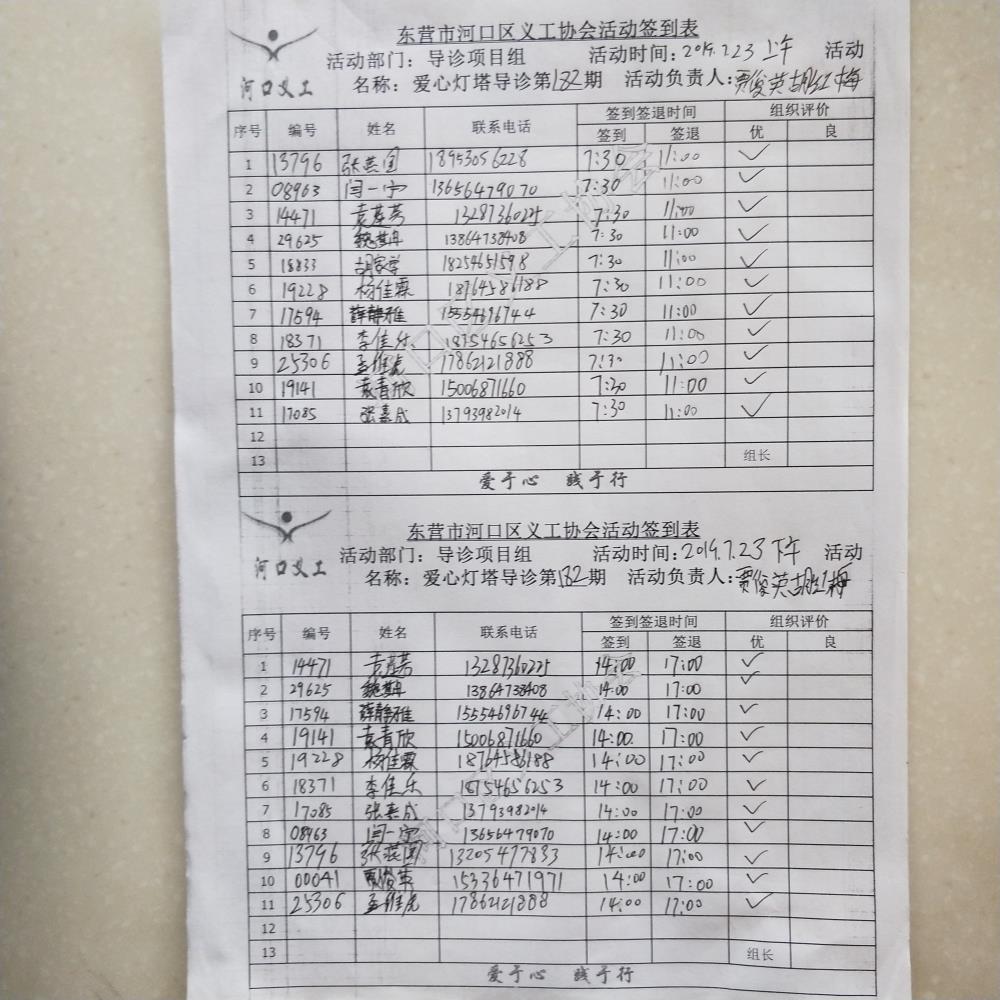 东营市河口区义工协会活动签到表
活动部门：导诊项目组 活动时间：2019.7.23 上午 活动
河口义工 名称：爱心灯塔导诊第182期 活动负责人：贾俊英胡红梅
序号 编号 姓名 联系电话 签到签退时间 组织评价
签到 签退 优 良
1 13796 张燕国 18953056228 7:30 11:00 ✓
2 08963 闫一宁 13656479070 7:30 11:00 ✓
3 14471 13287360225 7:30 11:00 ✓
4 29625 13864738408 7:30 11:00 ✓
5 18833 胡家学 18254651598 7:30 11:00 ✓
6 19228 杨佳霖 18764586188 7:30 11:00 ✓
7 17594 薛静雅 15554696744 7:30 11:00 ✓
8 18371 李佳乐 18754656253 7:30 11:00 ✓
9 25306 孟维虎 17862121888 7:30 11:00 ✓
10 19141 袁青欣 15006871660 7:30 11:00 ✓
11 17085 张嘉成 13793982014 7:30 11:00 ✓
12
13 组长
爱于心 践于行
东营市河口区义工协会活动签到表
活动部门：导诊项目组 活动时间：2019.7.23 下午 活动
河口义工 名称：爱心灯塔导诊第182期 活动负责人：贾俊英胡红梅
序号 编号 姓名 联系电话 签到签退时间 组织评价
签到 签退 优 良
1 14471 13287360225 14:00 17:00 ✓
2 29625 13864738408 14:00 17:00 ✓
3 17594 薛静雅 15554696744 14:00 17:00 ✓
4 19141 袁青欣 15006871660 14:00 17:00 ✓
5 19228 杨佳霖 18764586188 14:00 17:00 ✓
6 18371 李佳乐 18754656253 14:00 17:00 ✓
7 17085 张嘉成 13793982014 14:00 17:00 ✓
8 08963 闫一宁 13656479070 14:00 17:00 ✓
9 13796 张燕国 13205477833 14:00 17:00 ✓
10 00041 贾俊英 15336471971 14:00 17:00 ✓
11 25306 孟维虎 17862121888 14:00 17:00 ✓
12
13 组长
爱于心 践于行